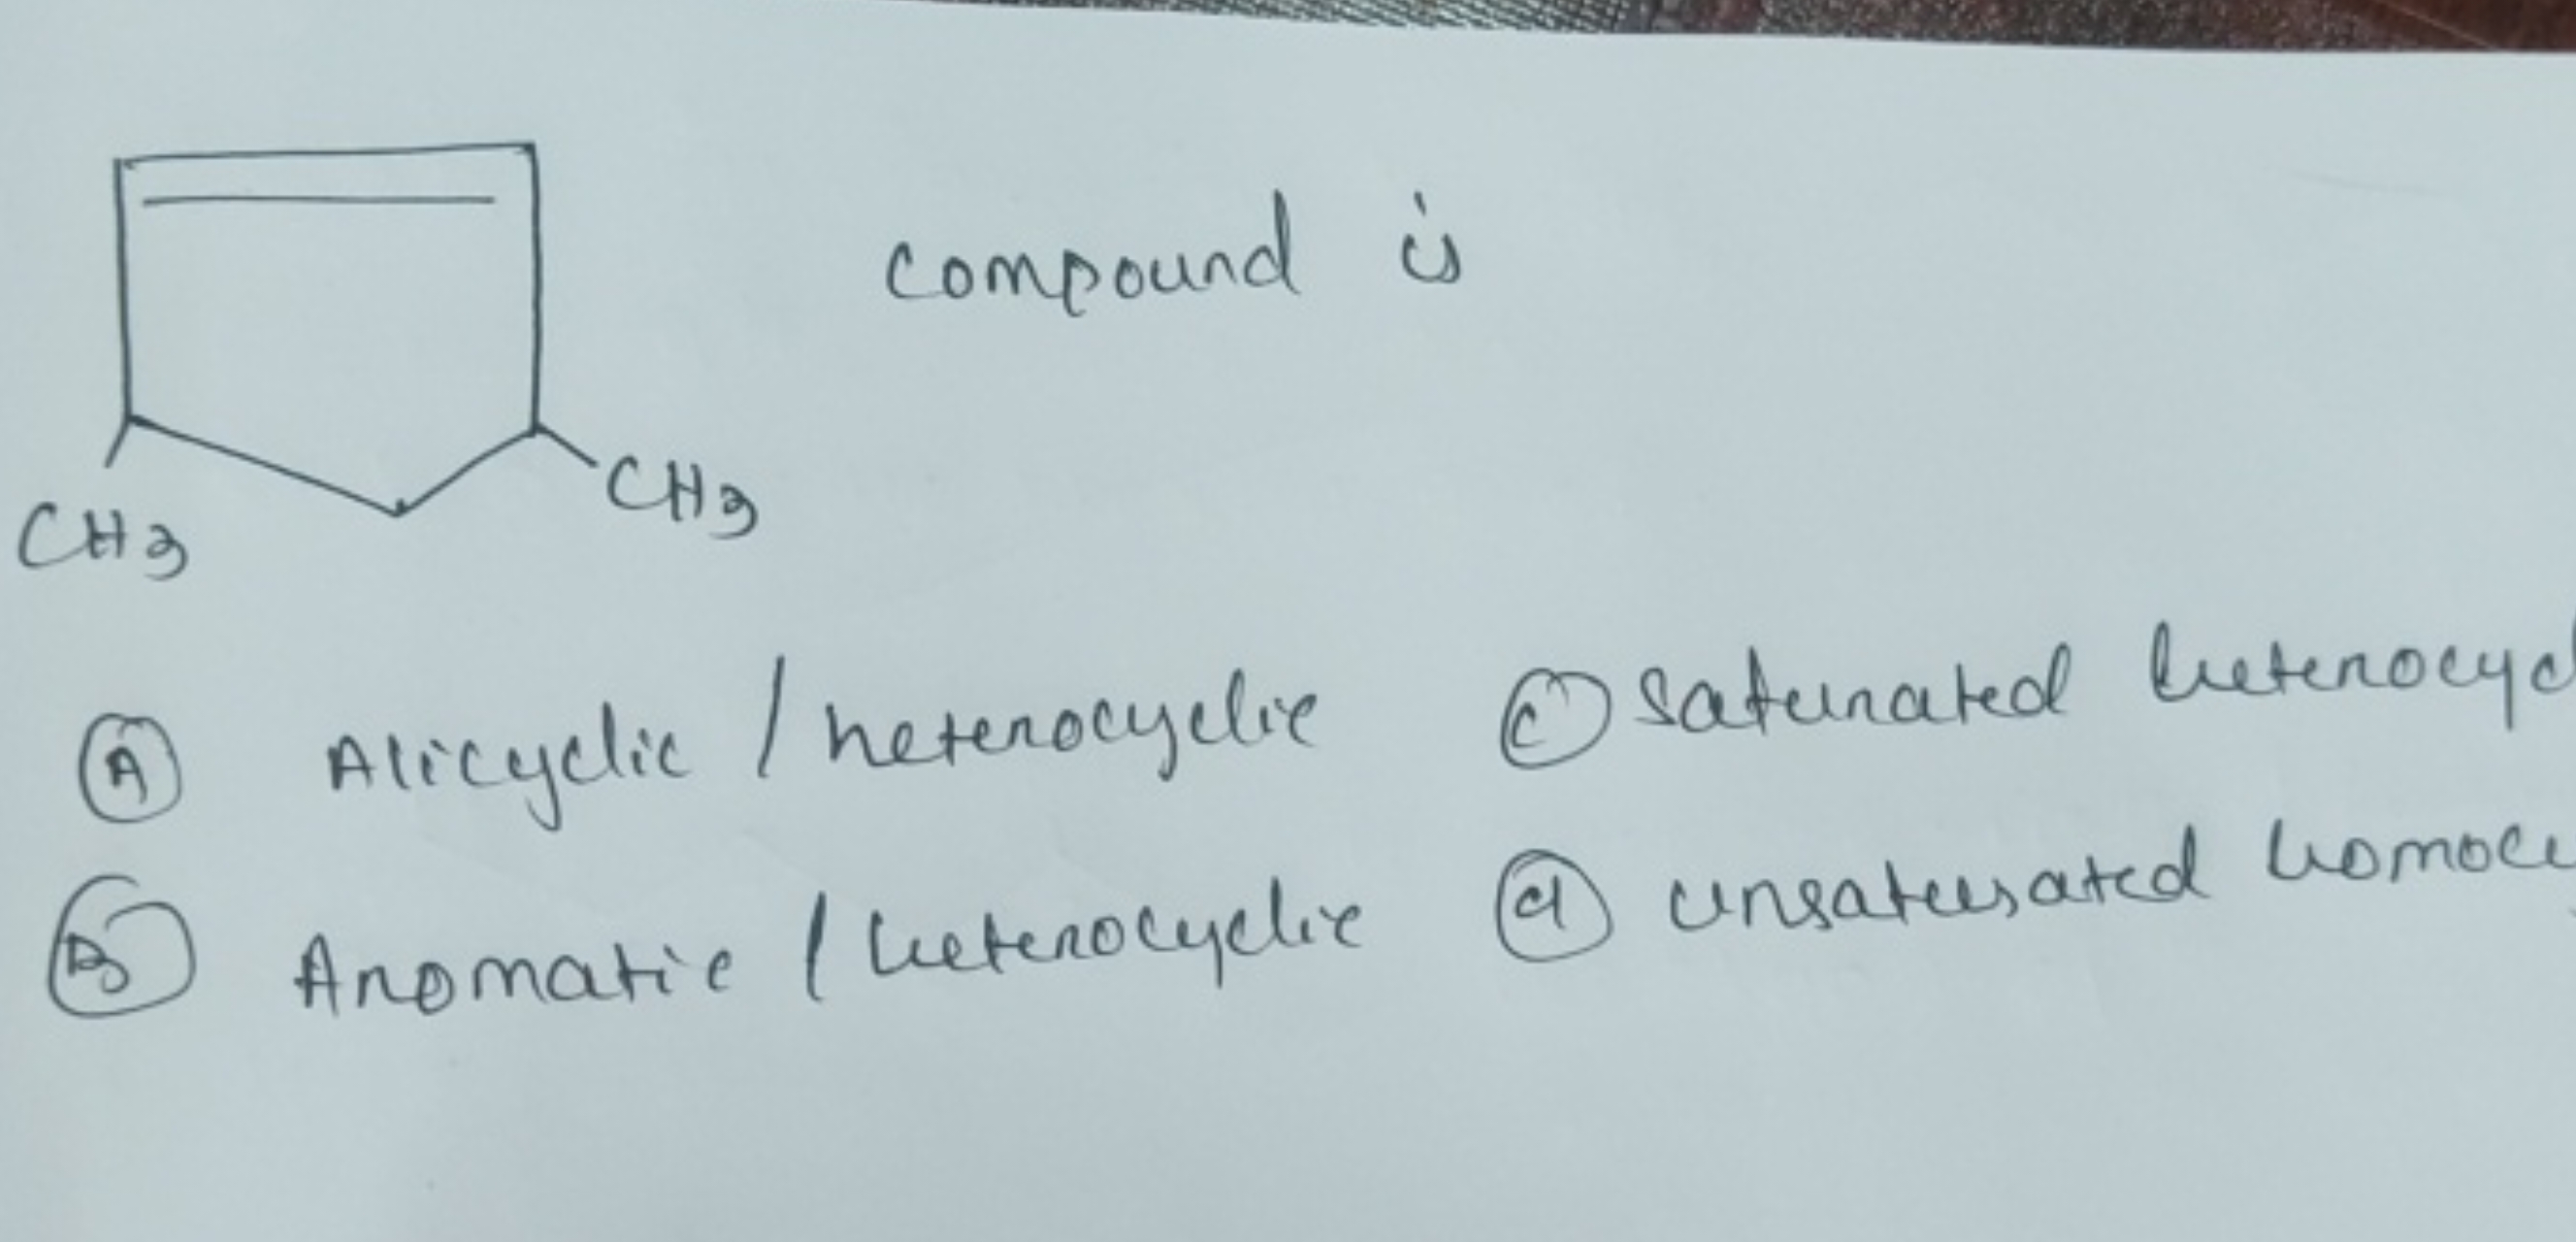 compound is
CH3
CH3
(A) Alicyclic / heterocyclic
(C) saturated heterocycl
(B) Aromatic / heterocyclic
(d) unsaturated homocy